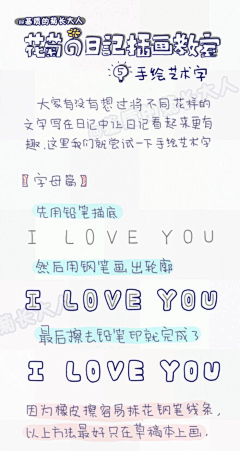 @基质的菊长大人
花菊の日记插画教室
⑤手绘艺术字
大家有没有想过将不同花样的
文字写在日记中让日记看起来更有
趣,这里我们就尝试一下手绘艺术字
【字母篇】
先用铅笔描底
I LOVE YOU
然后用钢笔画出轮廓
I LOVE YOU
最后擦去铅笔印就完成了
I LOVE YOU
因为橡皮擦容易抹花钢笔线条,
以上方法最好只在草稿本上画.